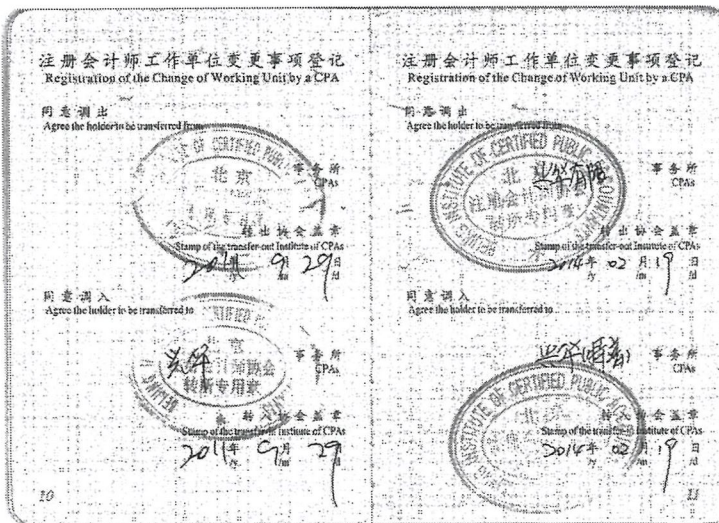 注册会计师工作单位变更事项登记
Registration of the Change of Working Unit by a CPA
同意调出
Agree the holder to be transferred from
OF CERTIFIED PUB
北京
事务所
CPAs
转出协会盖章
Stamp of the transfer-out Institute of CPAs
2011年 9月 29日
/y /m /d
同意调入
Agree the holder to be transferred to
北京
事务所
CPAs
转所专用章
转入协会盖章
Stamp of the transfer-in Institute of CPAs
2011年 9月 29日
/y /m /d
10
注册会计师工作单位变更事项登记
Registration of the Change of Working Unit by a CPA
同意调出
Agree the holder to be transferred from
INSTITUTE OF CERTIFIED PUBLIC
北
注册会计师
事务所
CPAs
转出协会盖章
Stamp of the transfer-out Institute of CPAs
2014年 02月 19日
/y /m /d
同意调入
Agree the holder to be transferred to
事务所
CPAs
INSTITUTE OF CERTIFIED PUBLIC
北京
转入协会盖章
Stamp of the transfer-in Institute of CPAs
2014年 02月 19日
/y /m /d
11